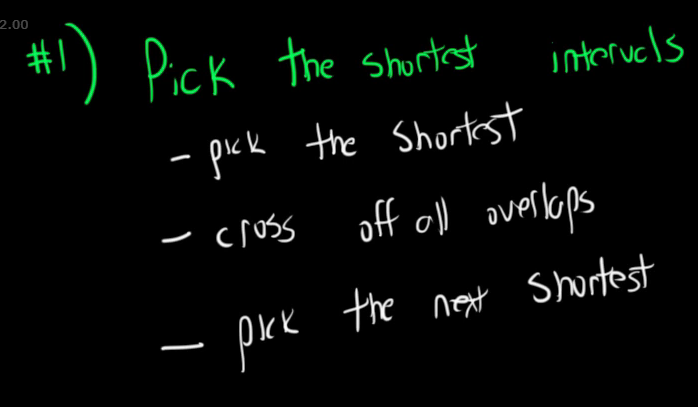 2.00
#1) Pick the shortest intervals
- pick the shortest
- cross off all overlaps
- pick the next shortest